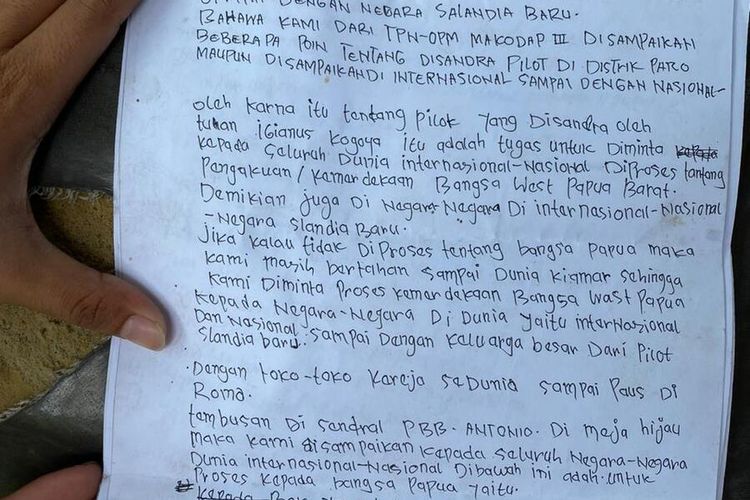 DENGAN NEGARA SALANDIA BARU.
BAHAWA KAMI DARI TPN-OPM MAKODAP III DISAMPAIKAN
BEBERAPA POIN TENTANG DISANDRA PILOT DI DISTRIK PARO
MAUPUN DISAMPAIKANDI INTERNASIONAL SAMPAI DENGAN NASIONAL-
oleh karna itu tentang pilot yang Disandra oleh
tuhan iGianus Kogoya itu adalah tugas untuk Diminta kepada
kepada seluruh Dunia internazional-Nasional DiProses tantang
Pengakuan/kamardekaan Bangsa West Papua Barat.
Demikian juga Di Negara-Negara Di internasional-Nasional
-Negara slandia Baru.
Jika kalau tidak DiProses tentang bangsa Papua maka
kami masih bartahan sampai Dunia kiamar sehingga
kami Diminta Proses kemardekaan Bangsa Wast Papua
kepada Negara-Negara Di Dunia yaitu internazional
Dan Nasional. sampai Dangan kaluarga besar Dari Pilot
slandia baru.
Dengan toko-toko Kareja seDunia sampai Paus Di
Roma.
tambusan Di sendral PBB. ANTONIO. Di meja hijau
maka kami disampaikan kepada seluruh Negara-Negara
Dunia internasional-Nasional Dibawah ini adah untuk
Proses kepada bangsa Papua yaitu.
kepada